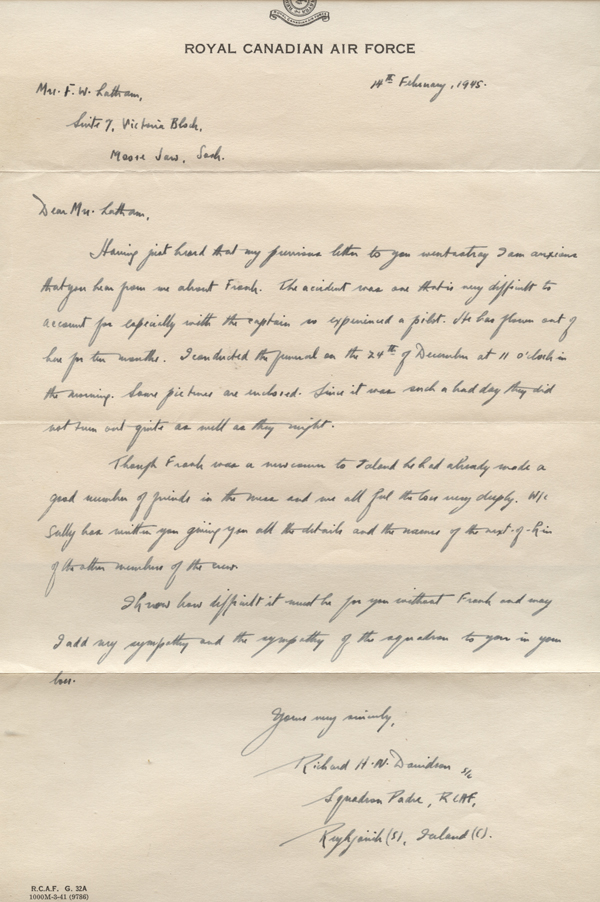 ROYAL CANADIAN AIR FORCE
14th February, 1945.
Mrs. F. W. Latham,
Suite 7, Victoria Block,
Moose Jaw, Sask.
Dear Mrs. Latham,
Having just heard that my previous letter to you went astray I am anxious
that you hear from me about Frank. The accident was one that is very difficult to
account for especially with the captain so experienced a pilot. He has flown out of
here for ten months. I conducted the funeral on the 24th of December at 11 o'clock in
the morning. Some pictures are enclosed. Since it was such a bad day they did
not turn out quite as well as they might.
Though Frank was a newcomer to Iceland he had already made a
good number of friends in the mess and we all feel the loss very deeply. W/C
Sully has written you giving you all the details and the names of the next-of-kin
of the other members of the crew.
I know how difficult it must be for you without Frank and may
I add my sympathy and the sympathy of the squadron to you in your
loss.
Yours very sincerely,
Richard H. N. Davidson S/L
Squadron Padre, RCAF,
Reykjavik (S), Iceland (C).
R.C.A.F. G. 32A
1000M-3-41 (9786)